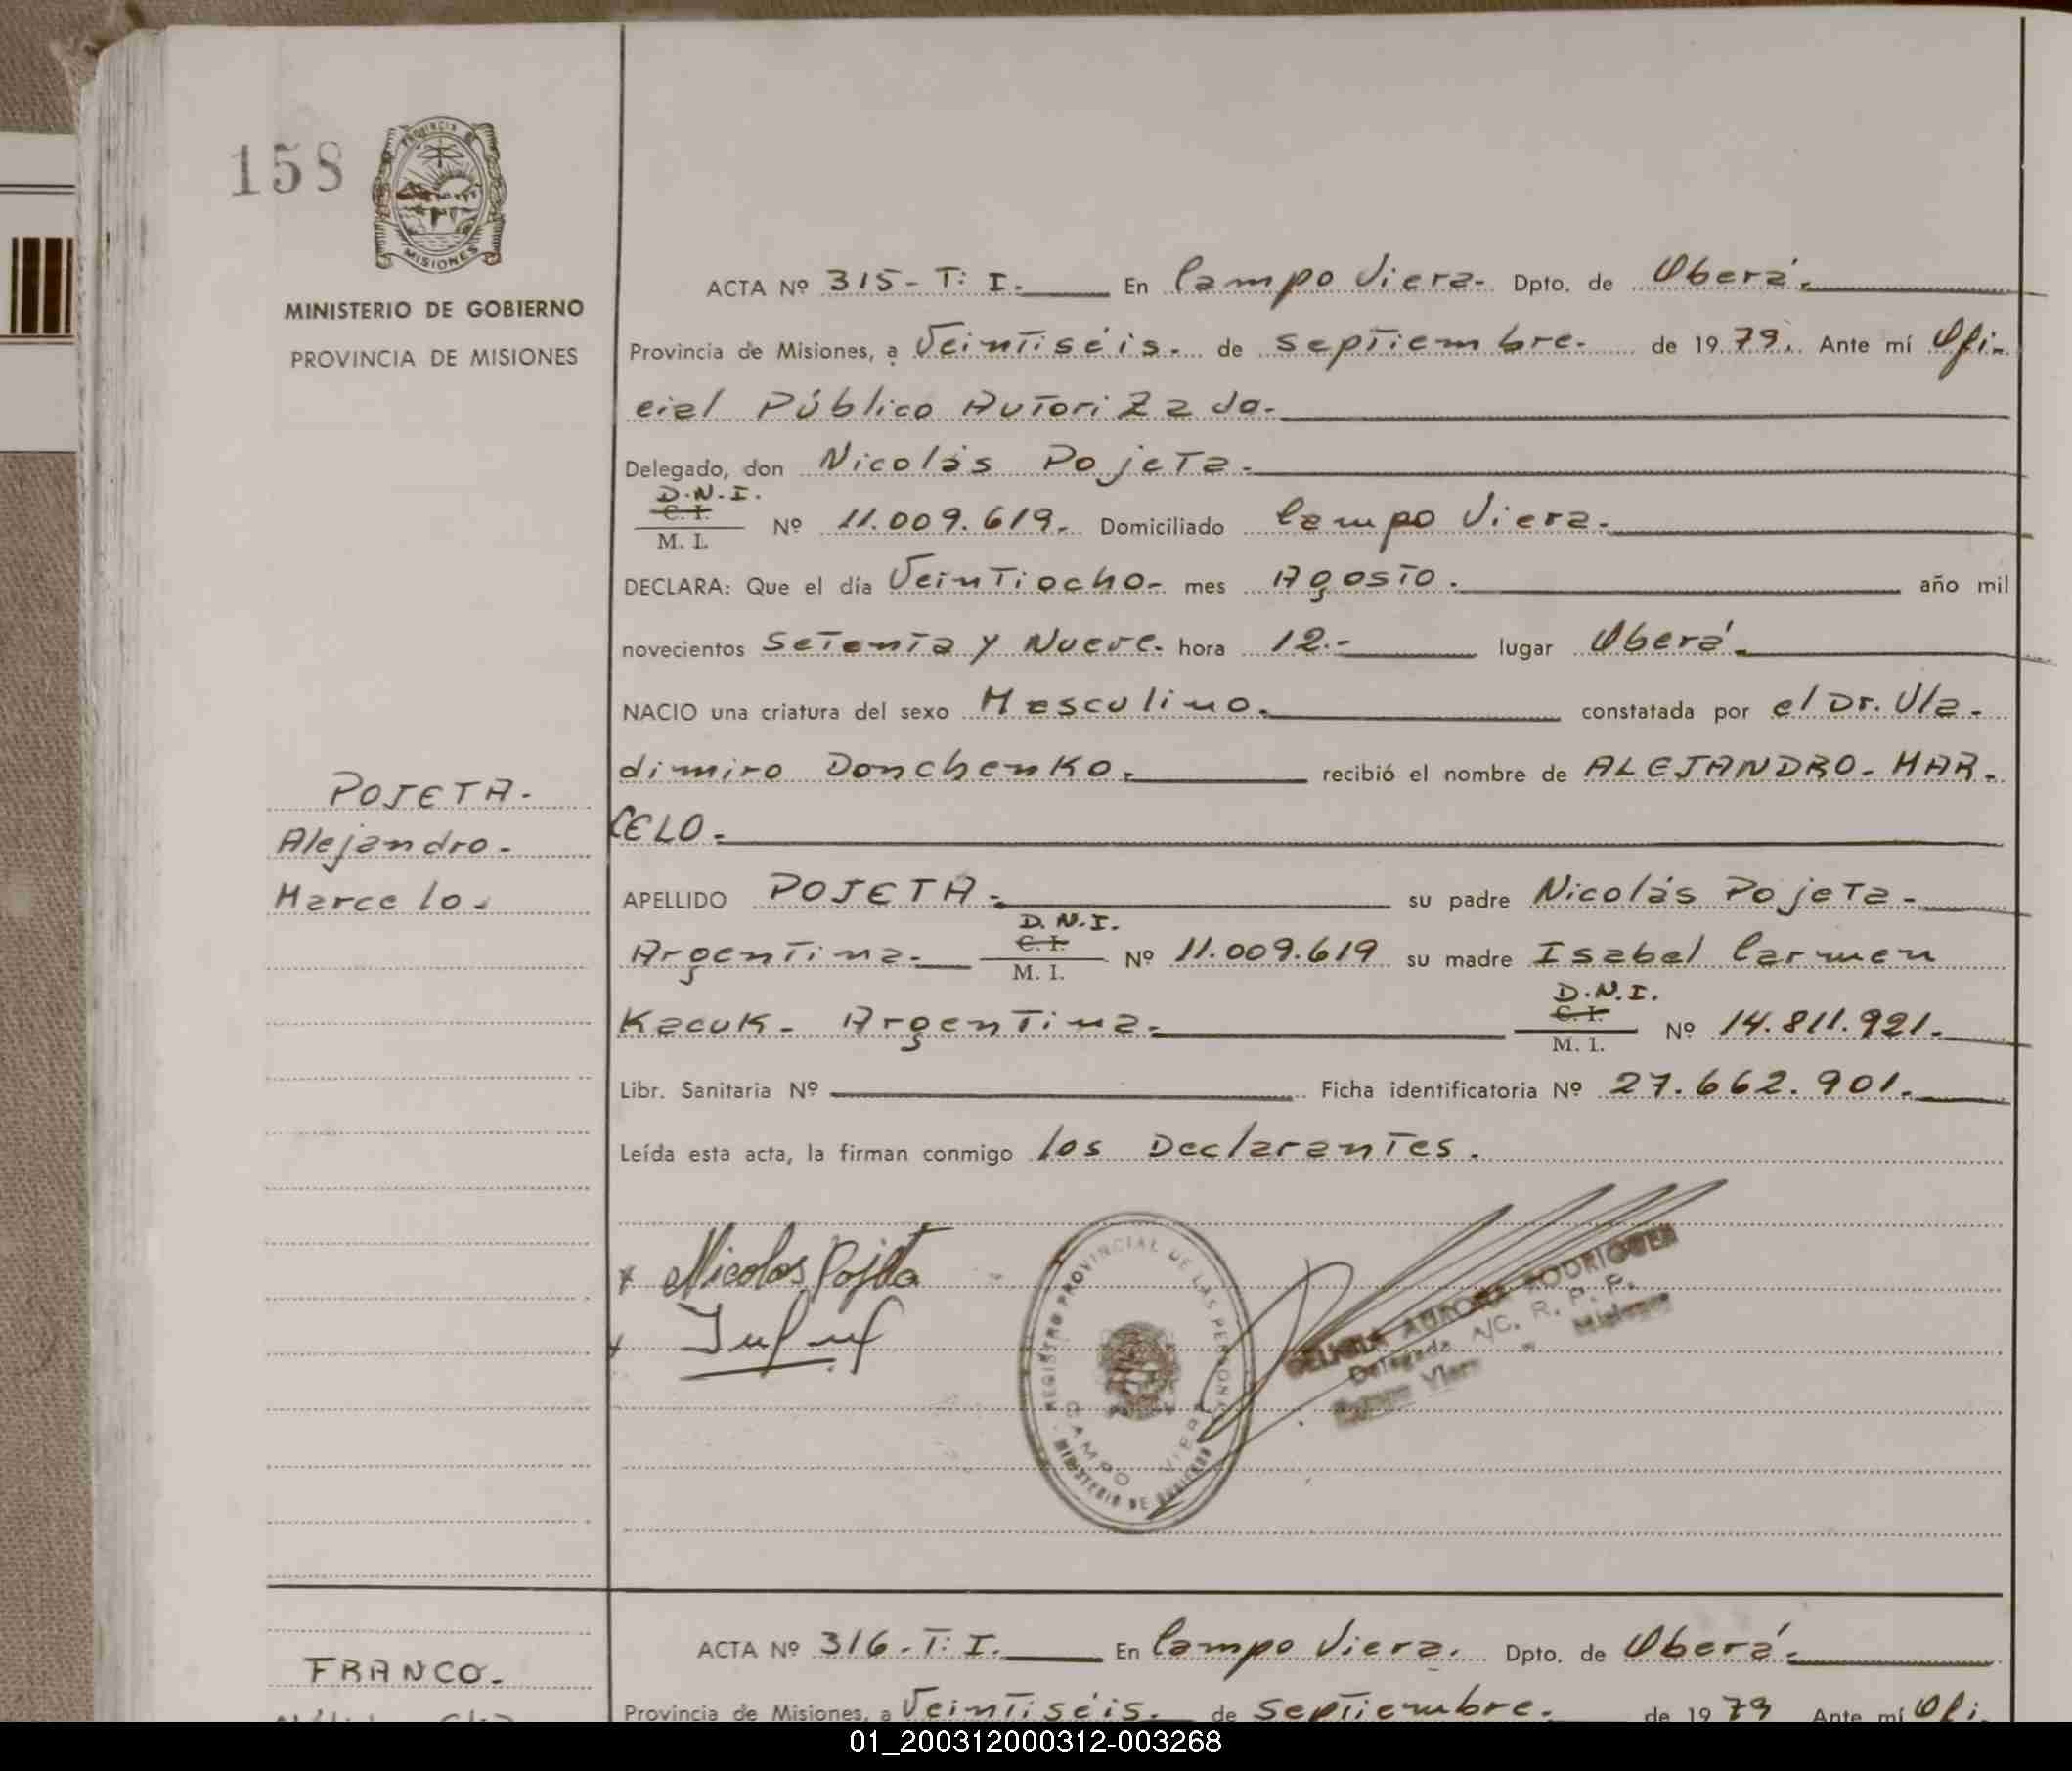 158
PROVINCIA DE
MISIONES
MINISTERIO DE GOBIERNO
PROVINCIA DE MISIONES
ACTA Nº 315-T: I. En Campo Viera. Dpto. de Oberá.
Provincia de Misiones, a Veintiséis. de septiembre. de 1979. Ante mí Ofi-
cial Público Autorizado.
Delegado, don Nicolás Pojeta.
D.N.I.
C. I.
M. I. Nº 11.009.619. Domiciliado Campo Viera.
DECLARA: Que el día Veintiocho- mes Agosto. año mil
novecientos Setenta y Nueve. hora 12.- lugar Oberá.
NACIO una criatura del sexo Masculino. constatada por el Dr. Vla-
dimiro Donchenko. recibió el nombre de ALEJANDRO- MAR-
CELO.
POJETA.
Alejandro.
Marcelo.
APELLIDO POJETA. su padre Nicolás Pojeta-
D.N.I.
C. I.
Argentina. M. I. Nº 11.009.619 su madre Isabel Carmen
D.N.I.
C. I.
Kacuk- Argentina. M. I. Nº 14.811.921.
Libr. Sanitaria Nº Ficha identificatoria Nº 27.662.901.
Leída esta acta, la firman conmigo los Declarantes.
x Nicolas Pojeta
REGISTRO PROVINCIAL DE LAS PERSONAS
CAMPO VIERA
MINISTERIO DE GOBIERNO
AURORA RODRIGUEZ
Delegada A/C. R. P. P.
Campo Viera - Misiones
ACTA Nº 316-T: I. En Campo Viera. Dpto. de Oberá.
FRANCO.
Provincia de Misiones, a Veintiséis. de Septiembre. de 1979 Ante mí Ofi-
01_200312000312-003268